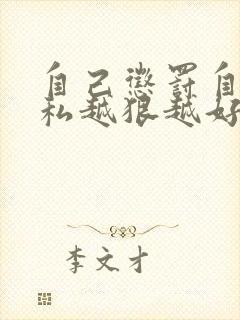 自己懲罰自
私越狠越好
李文才